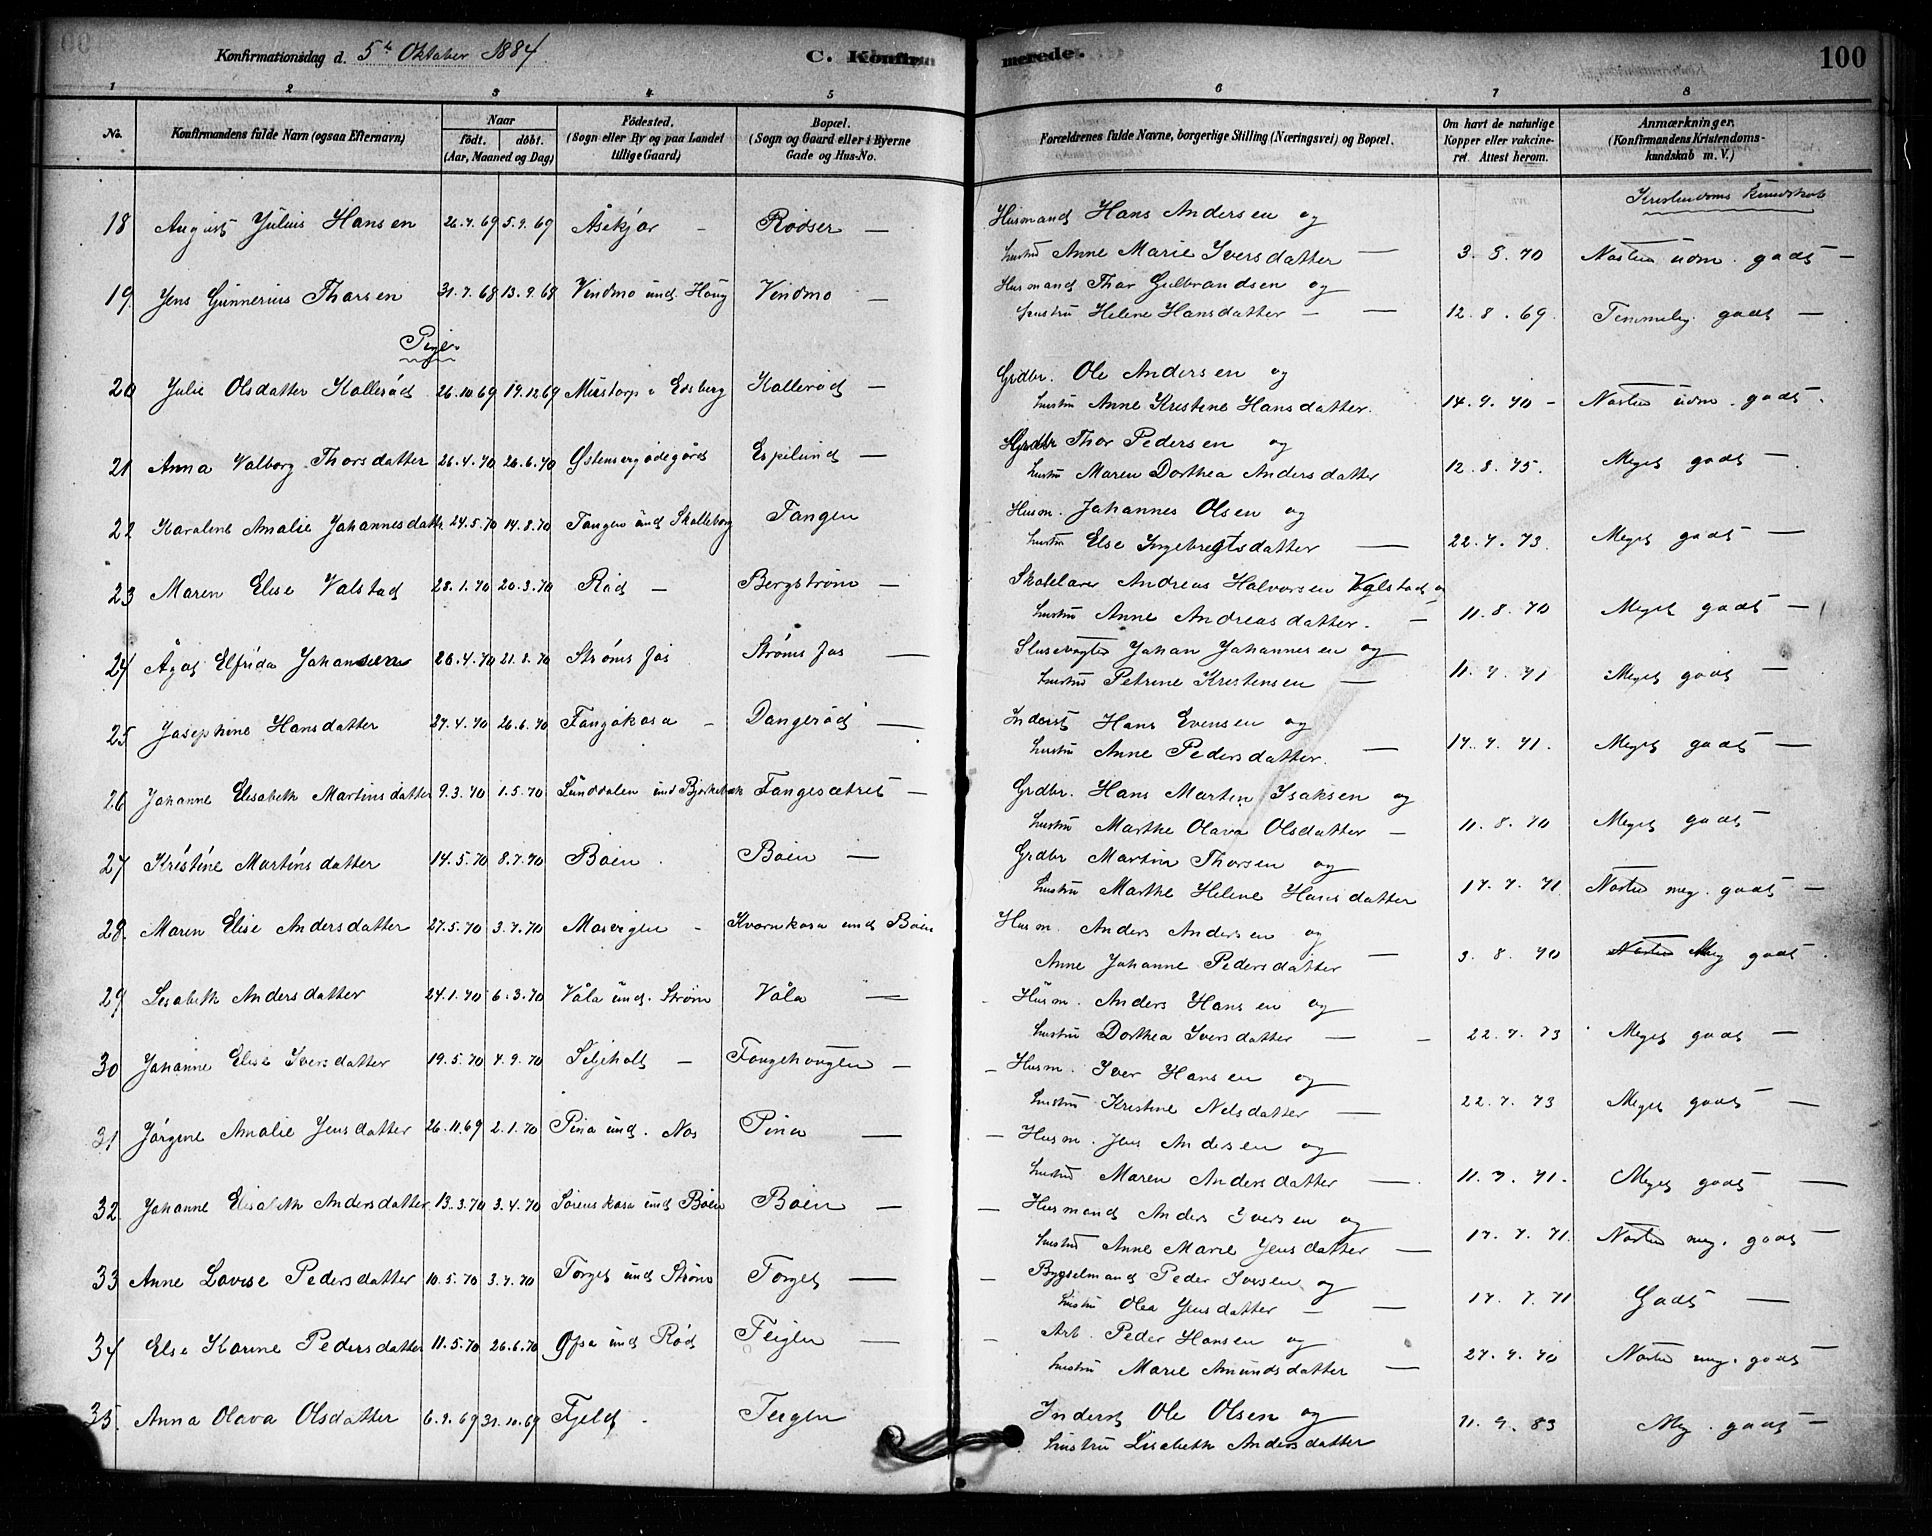 Konfirmationsdag d. 5te Oktober 1884.
C. Konfirmerede.
100
1 2 3 4 5 6 7 8
No.
Konfirmandens fulde Navn (ogsaa Efternavn)
Naar
født. døbt.
(Aar, Maaned og Dag)
Fødested.
(Sogn eller By og paa Landet
tillige Gaard)
Bopæl.
(Sogn og Gaard eller i Byerne
Gade og Hus-No.
Forældrenes fulde Navne, borgerlige Stilling (Næringsvei) og Bopæl.
Om havt de naturlige
Kopper eller vakcine-
ret. Attest herom.
Anmærkninger.
(Konfirmandens Kristendoms-
kundskab m. V.)
Kristendoms kundskab
18 August Julius Hansen 26.7.69 5.9.69 Åsekjær – Rødser — Husmand Hans Andersen og
hustru Anne Marie Iversdatter — 3.5.70 Næsten udm. godt –
19 Jens Gunnerius Thorsen 31.7.68 13.9.68 Vindmo und. Houg Vindmo — Husmand Thor Gulbrandsen og
hustru Helene Hansdatter – — 12.8.69. Temmelig godt —
Piger
20 Julie Olsdatter Kallerød 26.10.69 19.12.69 Misstorp i Edsberg Kallerød — Grdbr. Ole Andersen og
hustru Anne Kristine Hansdatter. 14.9.70 – Næsten udm. godt.
21 Anna Valborg Thorsdatter 26.4.70 26.6.70 Østensvigødegård Espelund — Grdbr Thor Pedersen og
hustru Maren Dorthea Andersdatter 12.8.75. Meget godt —
22 Karoline Amalie Johannesdatter 24.5.70 14.8.70 Tangen und Skalleborg Tangen Husm. Johannes Olsen og
hustru Else Ingebregtsdatter — 22.7.73. Meget godt —
23 Maren Elise Valstad 28.1.70 20.3.70 Rød – Bergstrøm – Skolelærer Andreas Halvorsen Valstad og
hustru Anne Andreasdatter. – 11.8.70 Meget godt –
24 Ågot Elfrida Johansen 26.4.70 21.8.70 Strøms fos Strøms fos — Slusevogter Johan Johannesen og
hustru Petrine Kristensen — 11.7.71 Meget godt —
25 Josephine Hansdatter 27.4.70 26.6.70 Tangåkasa – Dangerød — Inderst Hans Evensen og
hustru Anne Pedersdatter. — 17.7.71. Meget godt —
26 Johanne Elisabeth Martinsdatter 9.3.70 1.5.70 Lunddalen und Bjørkebæk Tangesætret – Grdbr. Hans Martin Isaksen og
hustru Marthe Olava Olsdatter – 11.8.70 Meget godt —
27 Kristine Martinsdatter 14.5.70 8.7.70 Boen Boen — Grdbr Martin Thorsen og
hustru Marthe Helene Hansdatter 17.7.71 Næsten meg. godt –
28. Maren Elise Andersdatter 27.5.70 3.7.70 Mosvigen – Kvernkasa und Boen Husm. Anders Andersen og
Anne Johanne Pedersdatter — 3.8.70 Meg godt.
29 Lisabeth Andersdatter 24.1.70 6.3.70 Våla und. Strøm Våla — Husm. Anders Hansen og
hustru Dorthea Iversdatter — – 22.7.73 Meget godt —
30 Johanne Elise Iversdatter 19.5.70 4.9.70 Siljeholt – Tangehougen – Husm. Iver Hansen og
hustru Kristine Nilsdatter — 22.7.73 Meget godt —
31 Jørgine Amalie Jensdatter 26.11.69 2.1.70 Pina und. Nos Pina — Husm. Jens Andersen og
hustru Maren Andersdatter —. 11.7.71. Meget godt —
32 Johanne Elisabeth Andersdatter. 13.3.70 3.4.70 Sørenskasa und Boen Boen — Husmand Anders Iversen og
hustru Anne Marie Jensdatter — 17.7.71. Næsten meg. godt —
33 Anne Lovise Pedersdatter 10.5.70 3.7.70 Torget und Strøm Torget — Bygselmand Peder Iversen og
hustru Olea Jensdatter – — 17.7.71 Godt —
34 Else Karine Pedersdatter 11.5.70 26.6.70 und Rød Teigen — Arb. Peder Hansen og
hustru Marie Amundsdatter — 27.9.70 Næsten meg. godt —
35. Anna Olava Olsdatter 6.9.69 31.10.69 Fjeld – Teigen Inderst Ole Olsen og
hustru Lisabeth Andersdatter 11.9.83 Meg. godt –